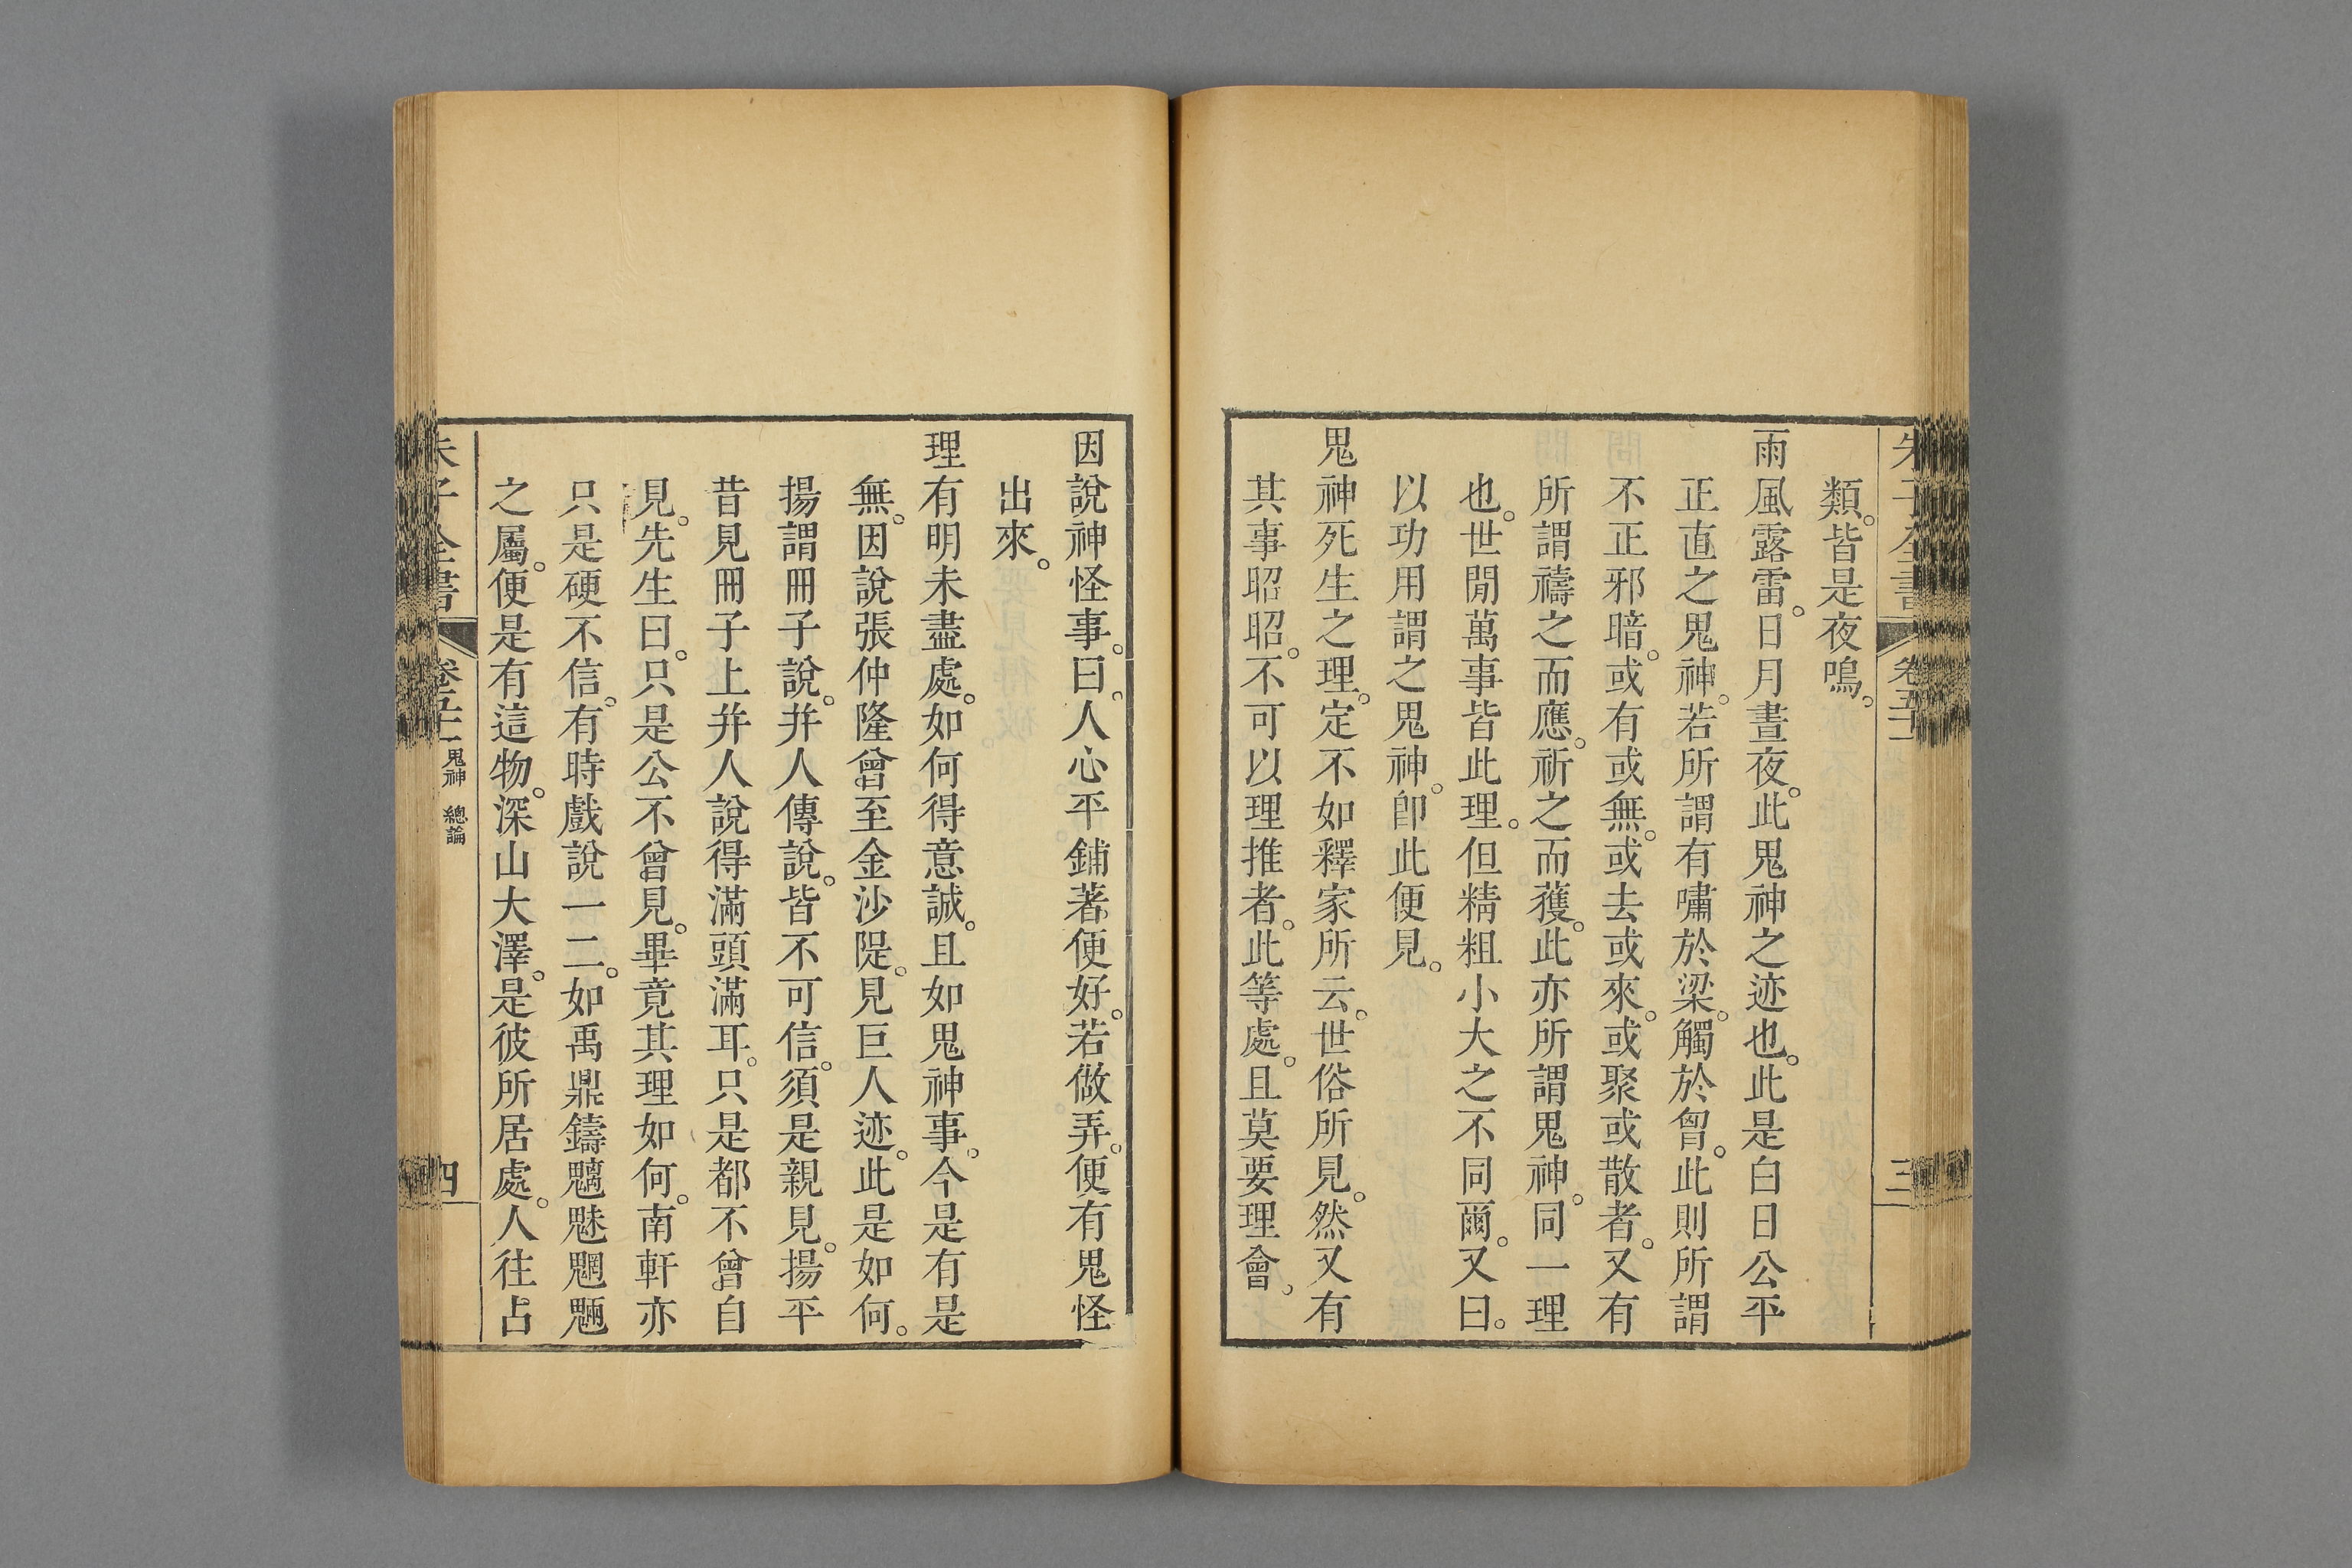 類。皆是夜鳴。
雨風露雷。日月晝夜。此鬼神之迹也。此是白日公平
正直之鬼神。若所謂有嘯於梁。觸於胷。此則所謂
不正邪暗。或有或無。或去或來。或聚或散者。又有
所謂禱之而應。祈之而獲。此亦所謂鬼神。同一理
也。世閒萬事皆此理。但精粗小大之不同爾。又曰。
以功用謂之鬼神。卽此便見。
鬼神死生之理。定不如釋家所云。世俗所見。然又有
其事昭昭。不可以理推者。此等處。且莫要理會。
因說神怪事。曰。人心平鋪著便好。若做弄。便有鬼怪
出來。
理有明未盡處。如何得意誠。且如鬼神事。今是有是
無。因說張仲隆曾至金沙隄。見巨人迹。此是如何。
揚謂冊子說。幷人傳說。皆不可信。須是親見。揚平
昔見冊子上幷人說得滿頭滿耳。只是都不曾自
見。先生曰。只是公不曾見。畢竟其理如何。南軒亦
只是硬不信。有時戲說一二。如禹鼎鑄魑魅魍魎
之屬。便是有這物。深山大澤。是彼所居處。人往占
朱子全書
卷五十一
鬼神
總論
四